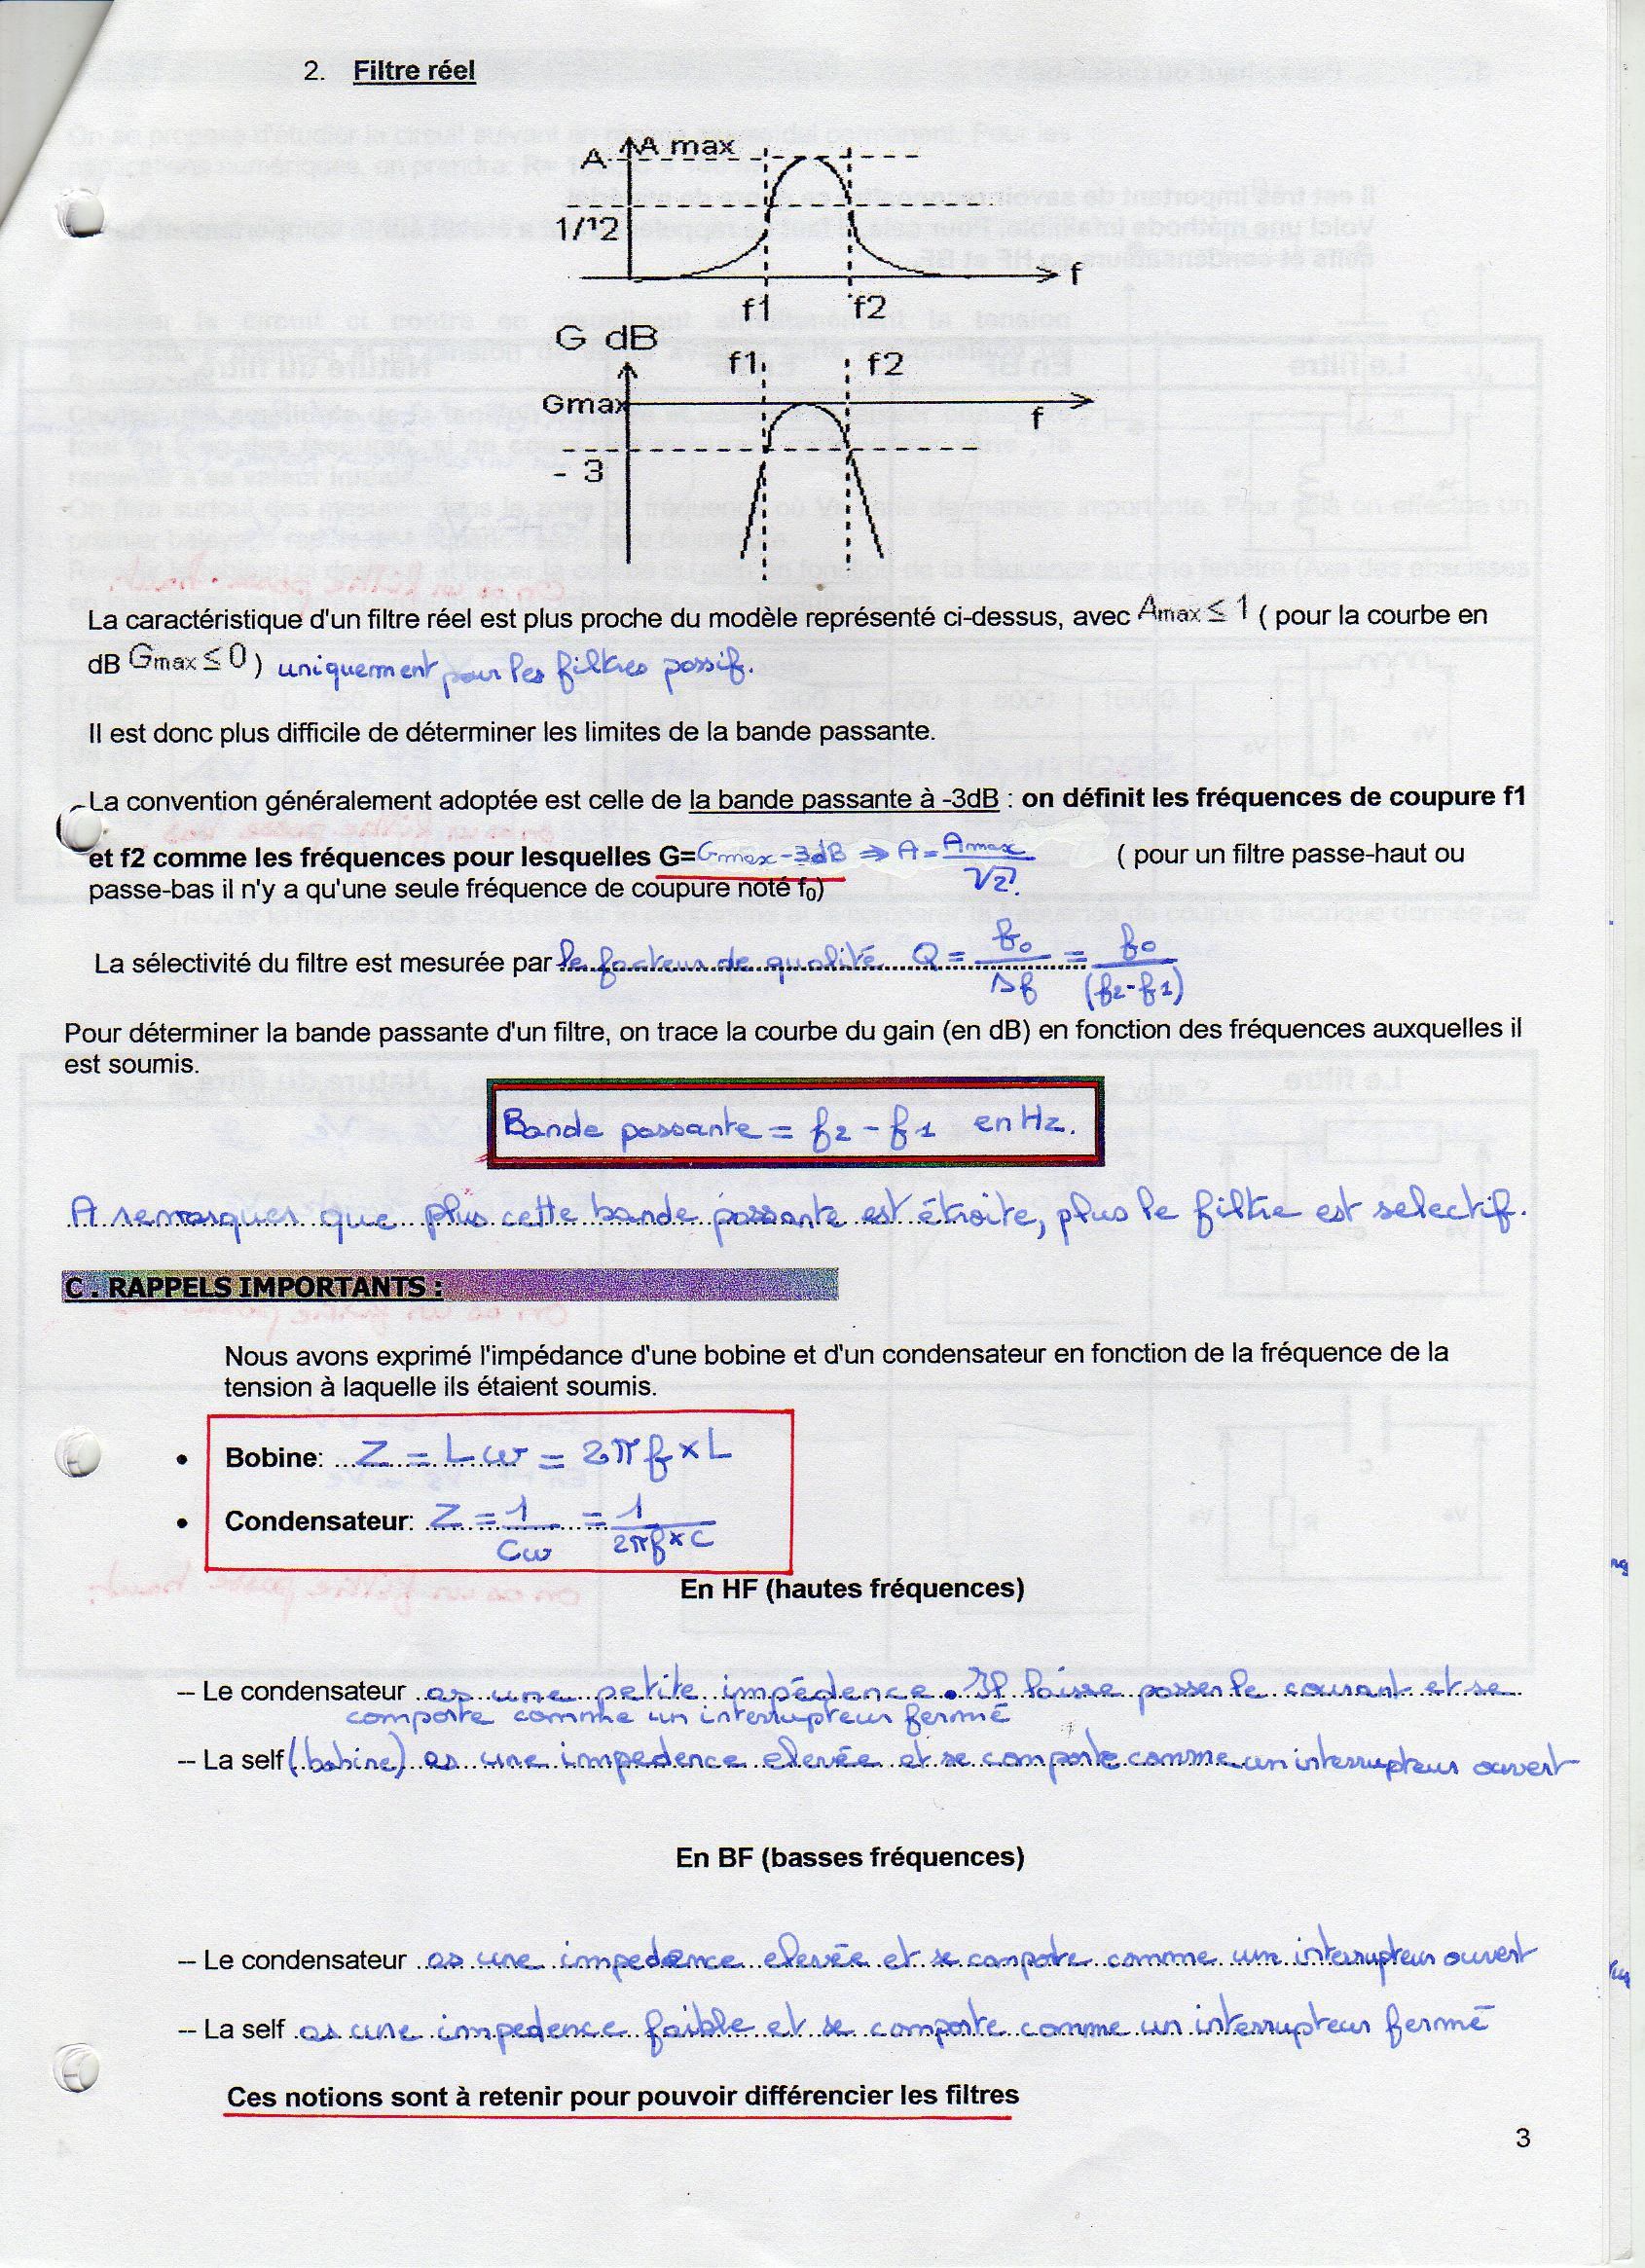 2. Filtre réel
A
A max
1/√2
f
f1
f2
G dB
f1
f2
Gmax
f
- 3
La caractéristique d'un filtre réel est plus proche du modèle représenté ci-dessus, avec Amax ≤ 1 ( pour la courbe en
dB Gmax ≤ 0 ) uniquement pour les filtres passif.
Il est donc plus difficile de déterminer les limites de la bande passante.
La convention généralement adoptée est celle de la bande passante à -3dB : on définit les fréquences de coupure f1
et f2 comme les fréquences pour lesquelles G=Gmax-3dB ⇒ A = Amax/√2. ( pour un filtre passe-haut ou
passe-bas il n'y a qu'une seule fréquence de coupure noté f₀)
La sélectivité du filtre est mesurée par le facteur de qualité Q = f₀/Δf = f₀/(f2-f1)
Pour déterminer la bande passante d'un filtre, on trace la courbe du gain (en dB) en fonction des fréquences auxquelles il
est soumis.
Bande passante = f2 - f1 en Hz.
A remarquer que plus cette bande passante est étroite, plus le filtre est selectif.
C . RAPPELS IMPORTANTS :
Nous avons exprimé l'impédance d'une bobine et d'un condensateur en fonction de la fréquence de la
tension à laquelle ils étaient soumis.
• Bobine: Z = Lω = 2πf×L
• Condensateur: Z = 1/Cω = 1/2πf×C
En HF (hautes fréquences)
-- Le condensateur as une petite impédence. Il laisse passer le courant et se
comporte comme un interrupteur fermé
-- La self (bobine) as une impedence elevée et se comporte comme un interrupteur ouvert
En BF (basses fréquences)
-- Le condensateur as une impedence elevée et se compote comme un interrupteur ouvert
-- La self as une impedence faible et se comporte comme un interrupteur fermé
Ces notions sont à retenir pour pouvoir différencier les filtres
3